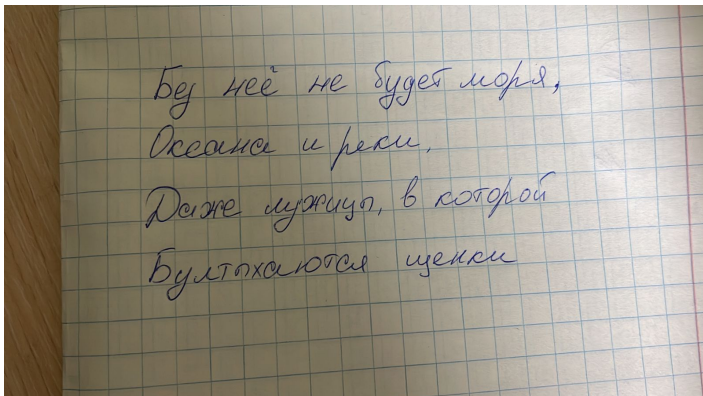 Без неё не будет моря,
Океана и реки,
Даже лужицы, в которой
Бултыхаются щенки